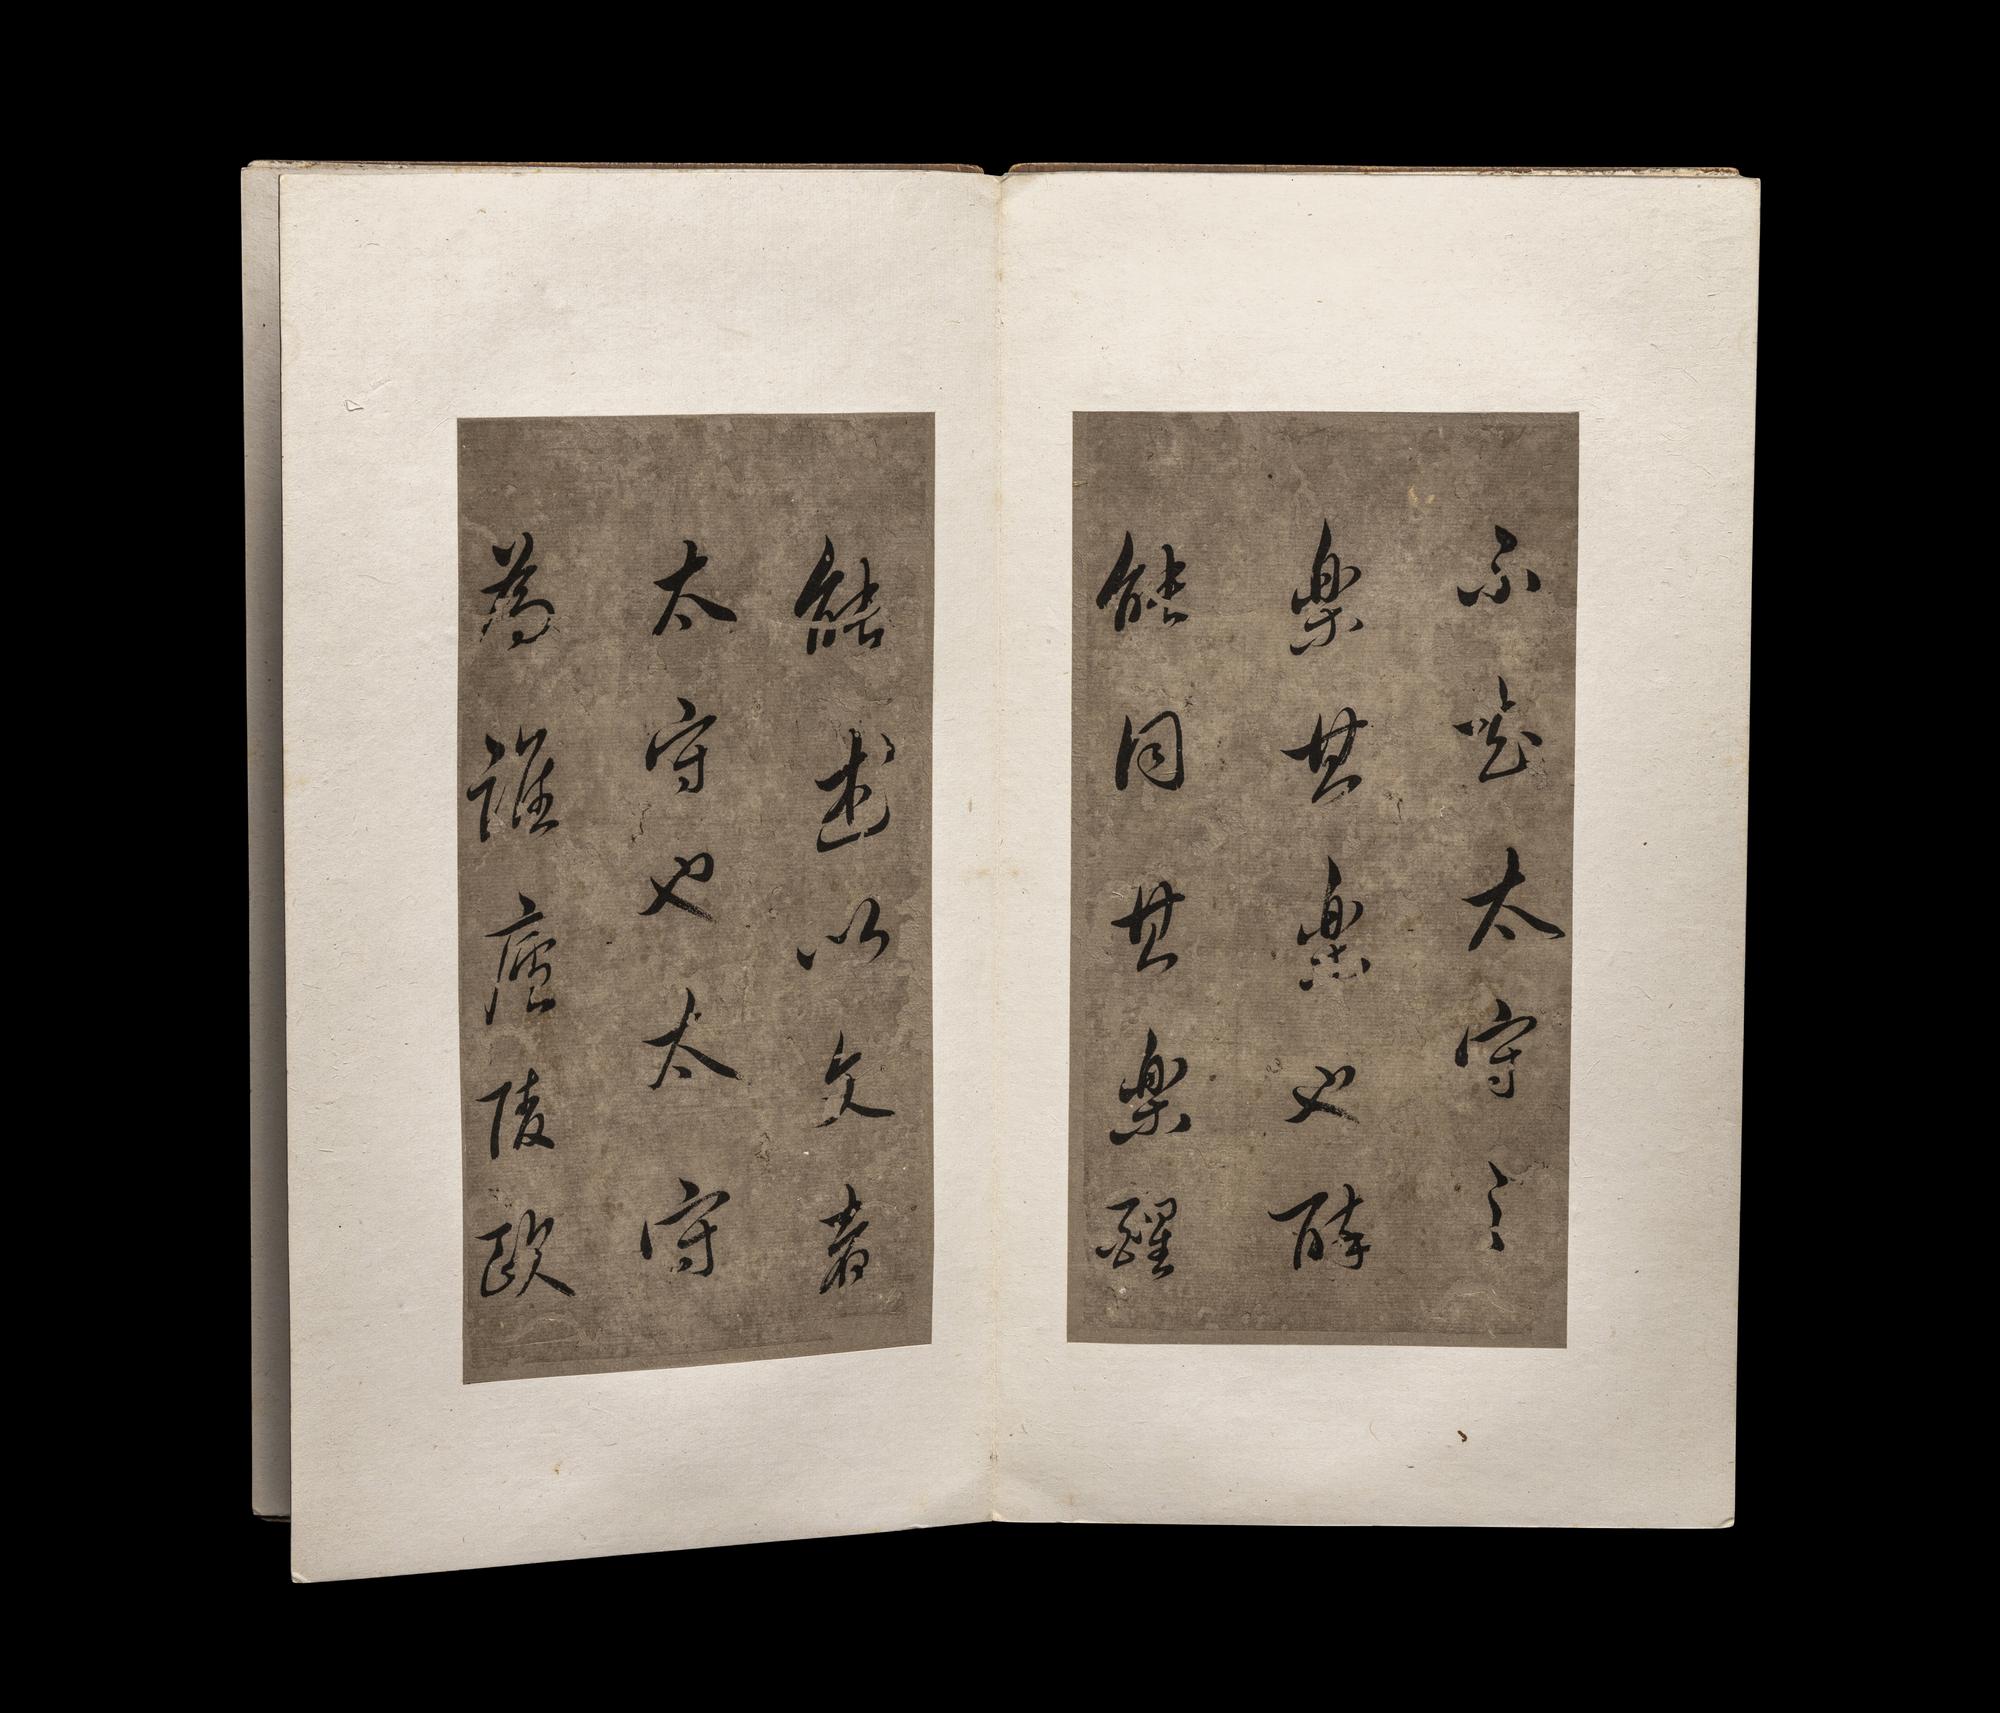 不知太守之
樂其樂也醉
能同其樂醒
能述以文者
太守也太守
為誰廬陵歐